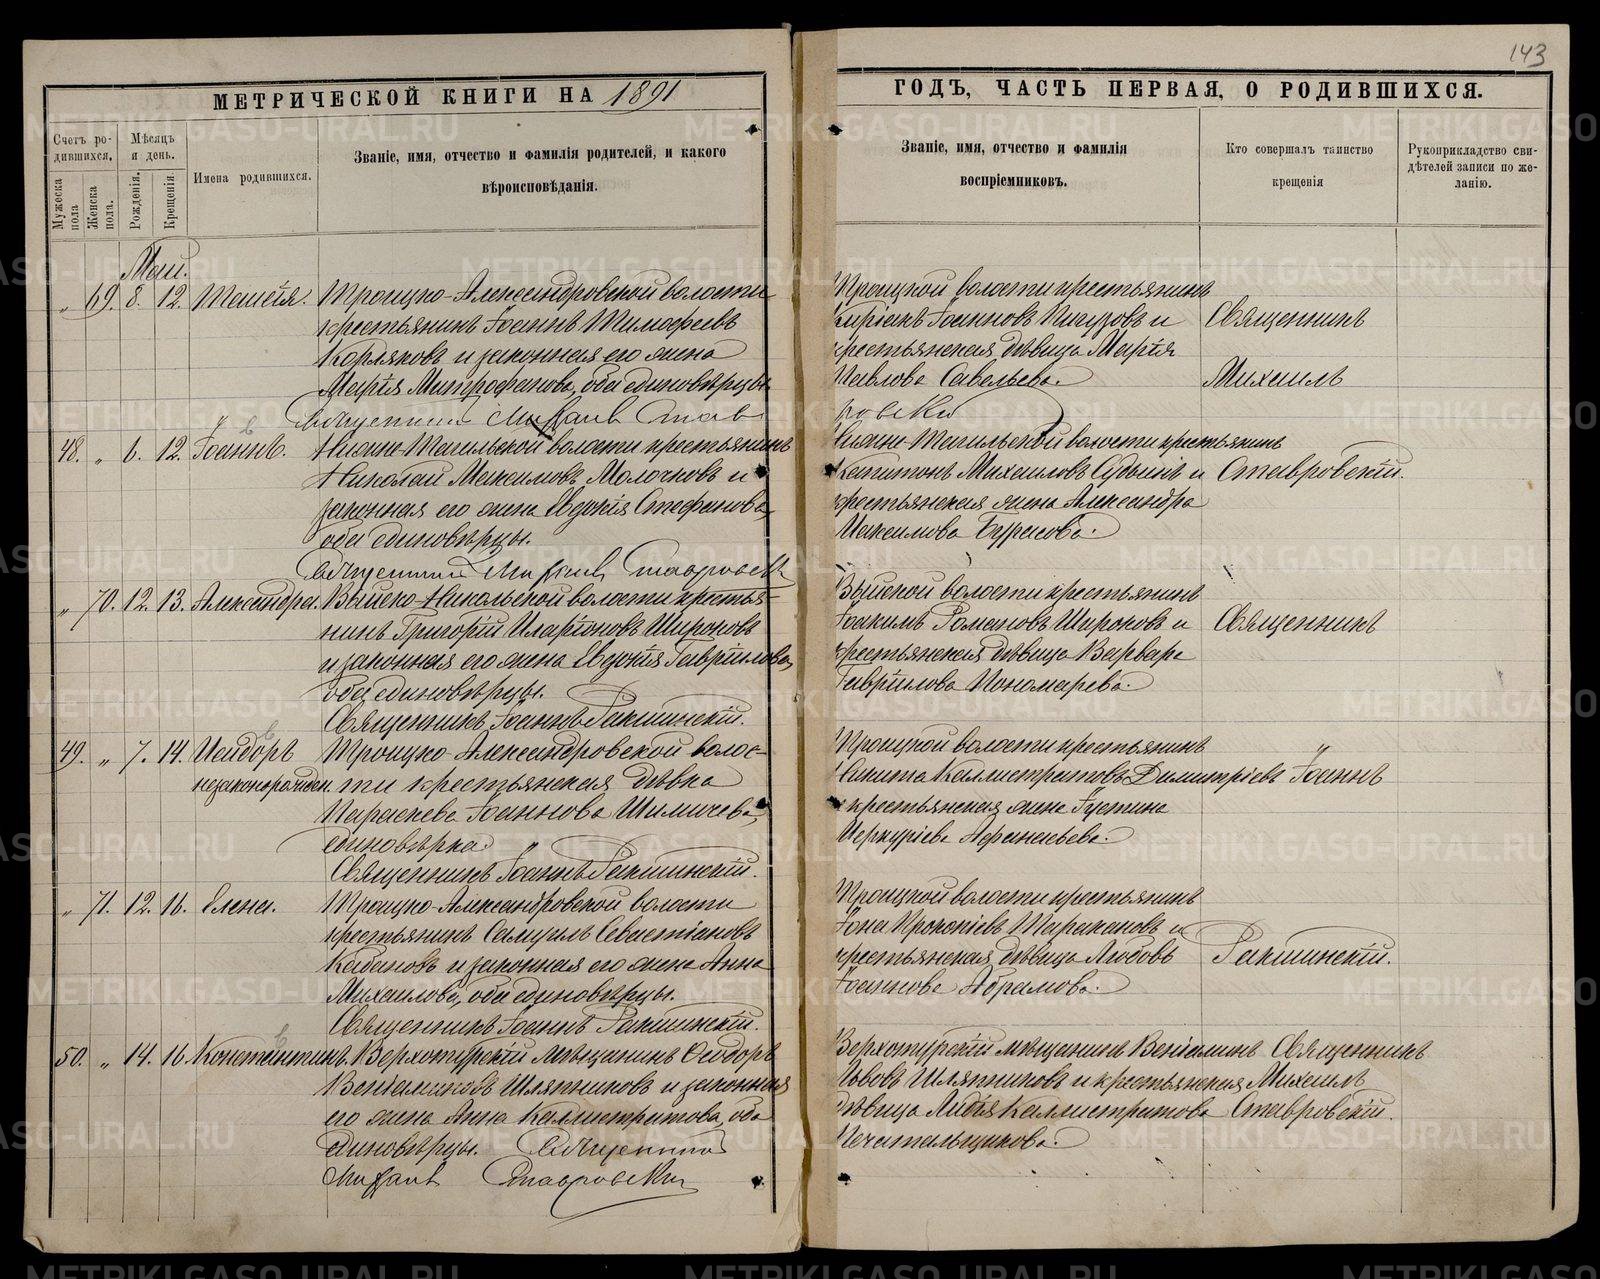 143
МЕТРИЧЕСКОЙ КНИГИ НА 1891
ГОДЪ, ЧАСТЬ ПЕРВАЯ, О РОДИВШИХСЯ.
Счетъ ро-
дившихся.
Мужеска пола
Женска пола.
Мѣсяцъ
и день.
Рожденія.
Крещенія
Имена родившихся.
Званіе, имя, отчество и фамилія родителей, и какого
вѣроисповѣданія.
Званіе, имя, отчество и фамилія
воспріемниковъ.
Кто совершалъ таинство
крещенія
Рукоприкладство сви-
дѣтелей записи по же-
ланію.
Май.
„ 69. 8. 12. Таисія. Троицко-Александровской волости
крестьянинъ Іоаннъ Тимофеевъ
Корляковъ и законная его жена
Марія Митрофанова, оба единовѣрцы
Священникъ Михаилъ Став
48. „ 6. 12. Іоаннъ. Нижне-Тагильской волости крестьянинъ
Николай Максимовъ Молочковъ и
законная его жена Евдокія Стефанова,
оба единовѣрцы.
Священникъ Михаилъ Ставровскій
„ 70. 12. 13. Александра. Выйско-Никольской волости крестья-
нинъ Григорій Иларіоновъ Широковъ
и законная его жена Евдокія Гавріилова,
оба единовѣрцы.
Священникъ Іоаннъ Ракшинскій.
49. „ 7. 14. Исидоръ Троицко-Александровской волос-
незаконорожден. ти крестьянская дѣвка
Параскева Іоаннова Шимичева,
единовѣрка.
Священникъ Іоаннъ Ракшинскій.
„ 71. 12. 16. Елена. Троицко-Александровской волости
крестьянинъ Самуилъ Севастіановъ
Кабановъ и законная его жена Анна
Михаилова, оба единовѣрцы.
Священникъ Іоаннъ Ракшинскій.
50. „ 14. 16. Константинъ. Верхотурскій мѣщанинъ Сидоръ
Веніаминовъ Шляпниковъ и законная
его жена Анна Каллистратова, оба
единовѣрцы. Священникъ
Михаилъ Ставровскій
Троицкой волости крестьянинъ
Киріакъ Іоанновъ и Священникъ
крестьянская дѣвица Марія
Павлова Савельева. Михаилъ
ровскій
Нижне-Тагильской волости крестьянинъ
Капитонъ Михаиловъ и Ставровскій.
крестьянская жена Александра
Максимова Бурасова.
Выйской волости крестьянинъ
Іоакимъ Романовъ Широковъ и Священникъ
крестьянская дѣвица Варвара
Гавріилова Пономарева.
Троицкой волости крестьянинъ
Никита Каллистратовъ Димитріевъ Іоаннъ
и крестьянская жена Густина
Меркуріева Афанасьева.
Троицкой волости крестьянинъ
Іона Прокопіевъ Таракановъ и
крестьянская дѣвица Любовь Ракшинскій.
Іоаннова Абрамова.
Верхотурскій мѣщанинъ Веніаминъ Священникъ
Львовъ Шляпниковъ и крестьянская Михаилъ
дѣвица Лидія Каллистратова Ставровскій.
Печатальщикова.
METRIKI.GASO-URAL.RU